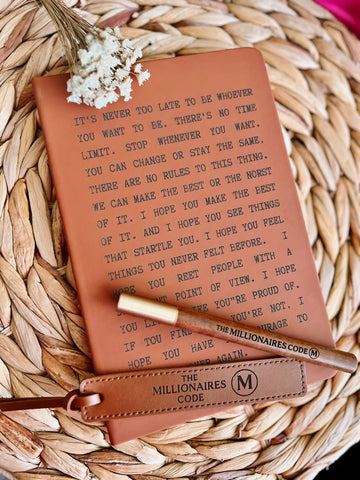 IT'S NEVER TOO LATE TO BE WHOEVER
YOU WANT TO BE. THERE'S NO TIME
LIMIT. STOP WHENEVER YOU WANT.
YOU CAN CHANGE OR STAY THE SAME.
THERE ARE NO RULES TO THIS THING.
WE CAN MAKE THE BEST OR THE NORST
OF IT. I HOPE YOU MAKE THE BEST
OF IT. AND I HOPE YOU SEE THINGS
THAT STARTLE YOU. I HOPE YOU FEEL
THINGS YOU NEVER FELT BEFORE. I
HOPE YOU REET PEOPLE WITH A
POINT OF VIEW. I HOPE
YOU"RE PROUD OF.
IF YOU FIND YOU'RE NOT. I
HOPE YOU HAVE TO
AGAIN.
THE MILLIONAIRES CODE M
THE
MILLIONAIRES M
CODE